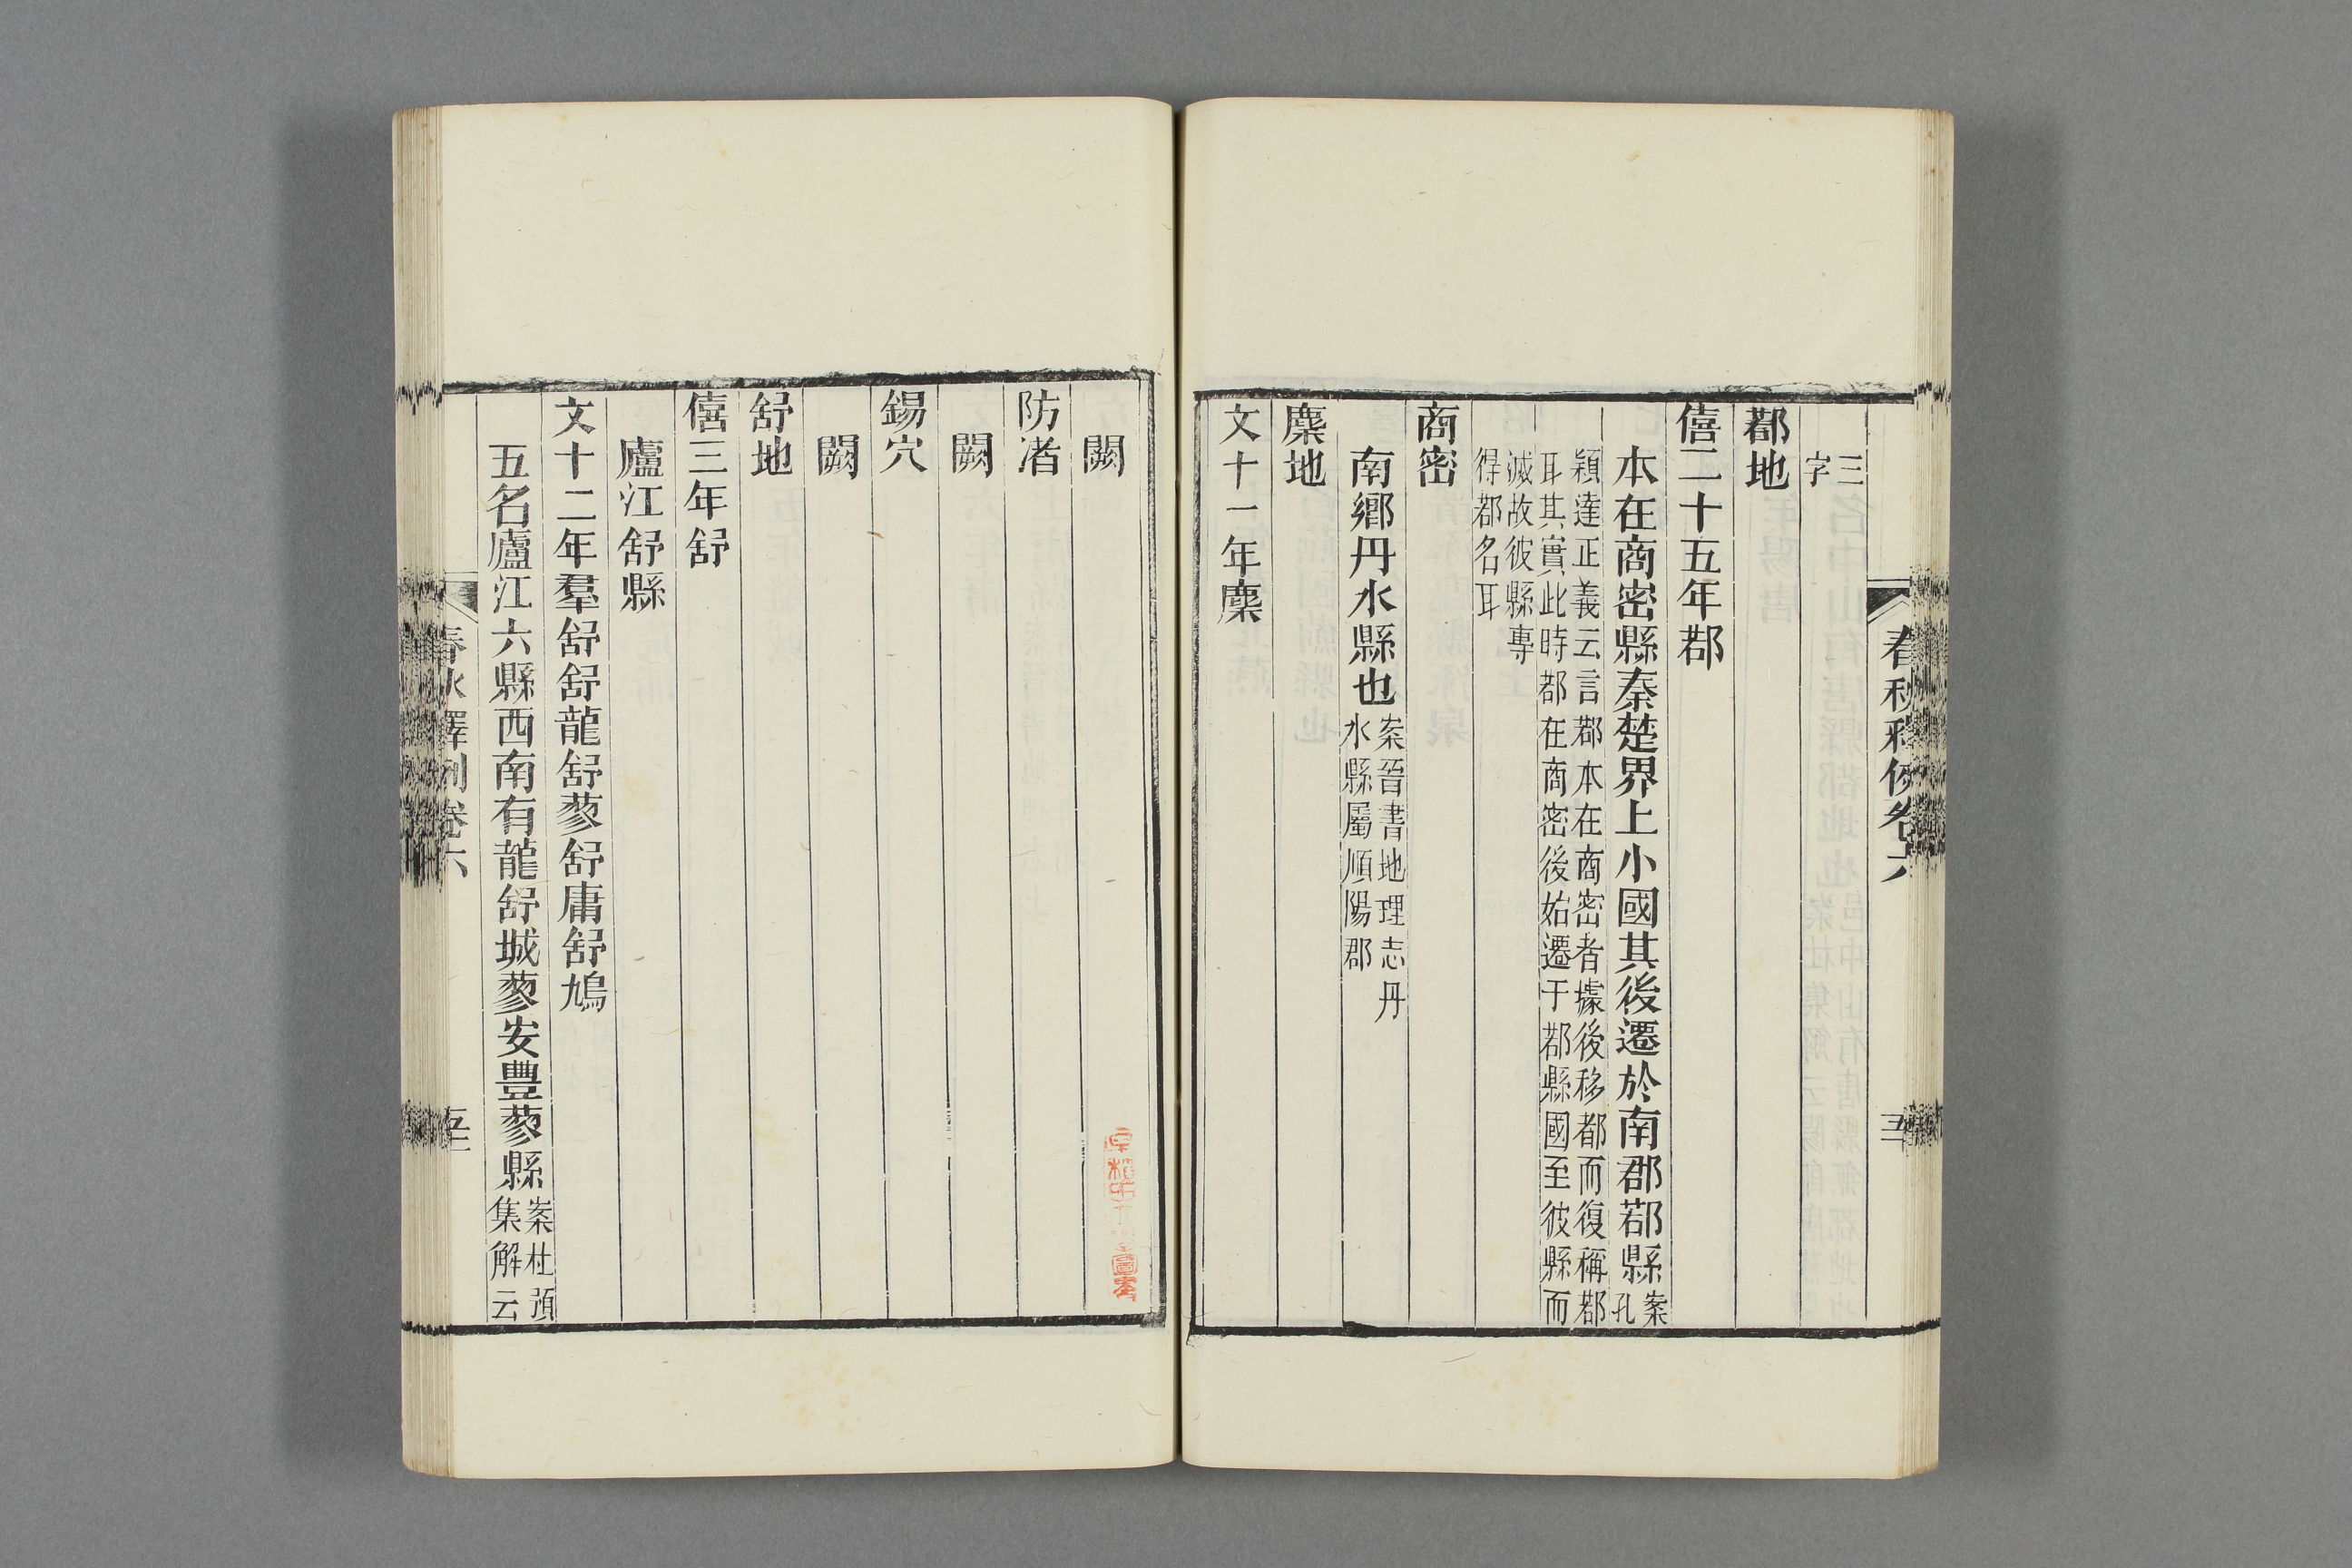 春秋釋例卷六
三
字
鄀地
僖二十五年鄀
本在商密縣秦楚界上小國其後遷於南郡鄀縣案孔
穎達正義云言鄀本在商密者據後移都而復稱鄀
耳其實此時鄀在商密後始遷于鄀縣國至彼縣而
滅故彼縣專
得鄀名耳
商密
南鄉丹水縣也案晉書地理志丹
水縣屬順陽郡
麇地
文十一年麇
闕
防渚
闕
錫穴
闕
舒地
僖三年舒
廬江舒縣
文十二年羣舒舒龍舒蓼舒庸舒鳩
五名廬江六縣西南有龍舒城蓼安豐蓼縣案杜預
集解云
春秋釋例卷六